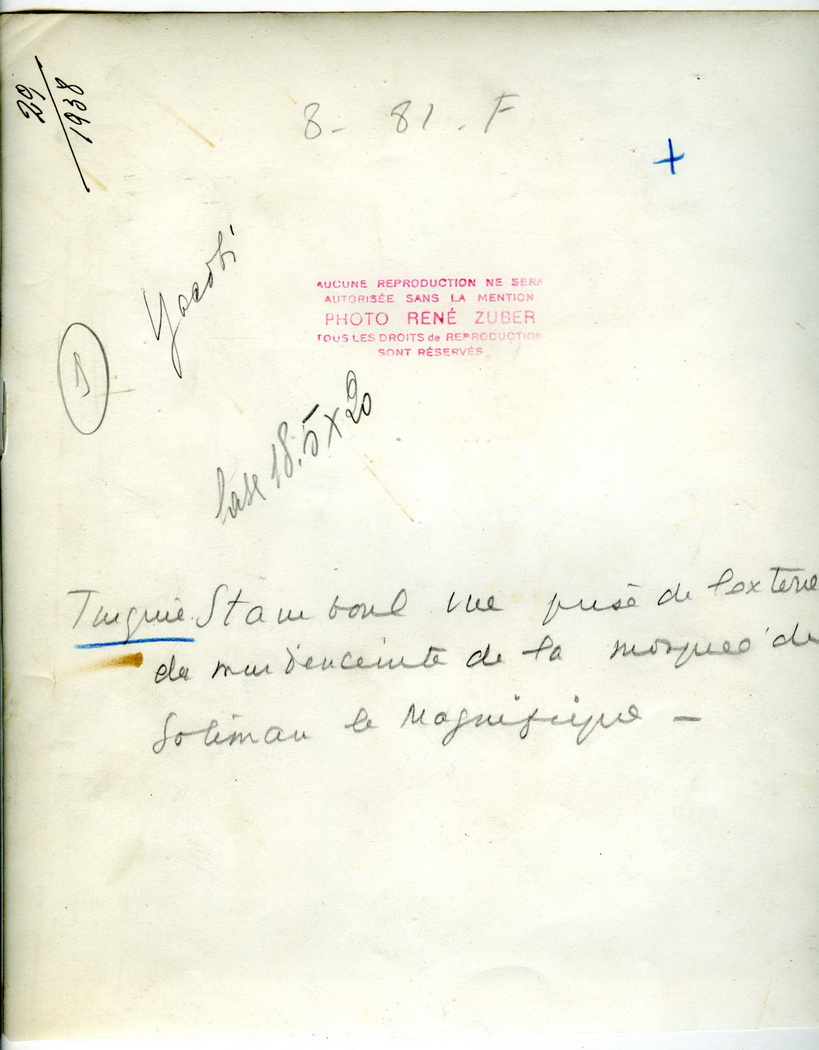 29
1938
8 - 81 - F
+
Yacobi
AUCUNE REPRODUCTION NE SERA
AUTORISÉE SANS LA MENTION
PHOTO RENÉ ZUBER
TOUS LES DROITS de REPRODUCTION
SONT RÉSERVÉS
1
base 18.5 x 20
Turquie Stamboul vue prise de l'exterie
du mur d'enceinte de la mosquée de
Soliman le Magnifique -